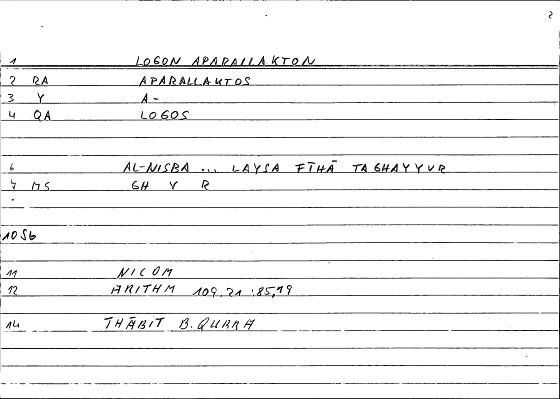 2
1 LOGON APARALLAKTON
2 RA APARALLAKTOS
3 Y A-
4 QA LOGOS
6 AL-NISBA ... LAYSA FĪHĀ TAGHAYYUR
7 MS GH Y R
10 S6
11 NICOM
12 ARITHM 109.21 :85,19
14 THĀBIT B. QURRA